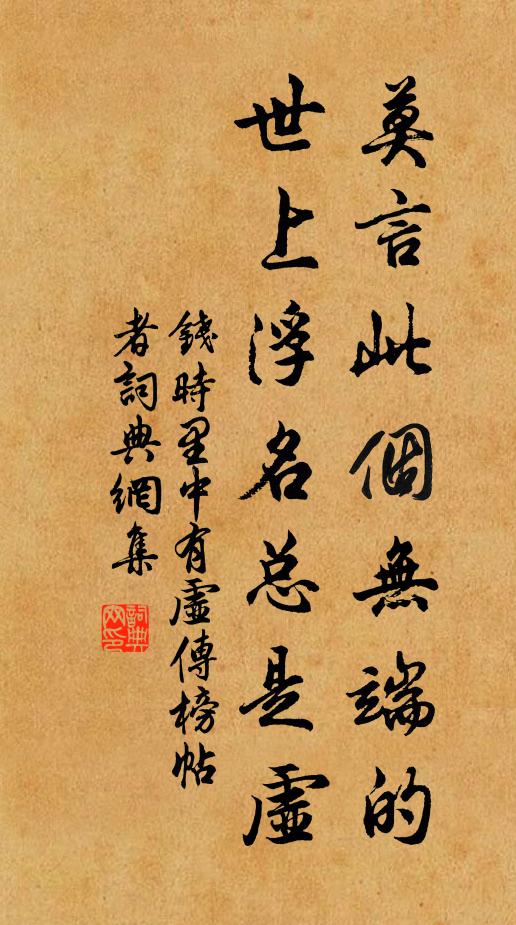 莫言此個無端的
世上浮名总是虛
錢時里中有虛傳榜帖
者詞典網集
詞典網印